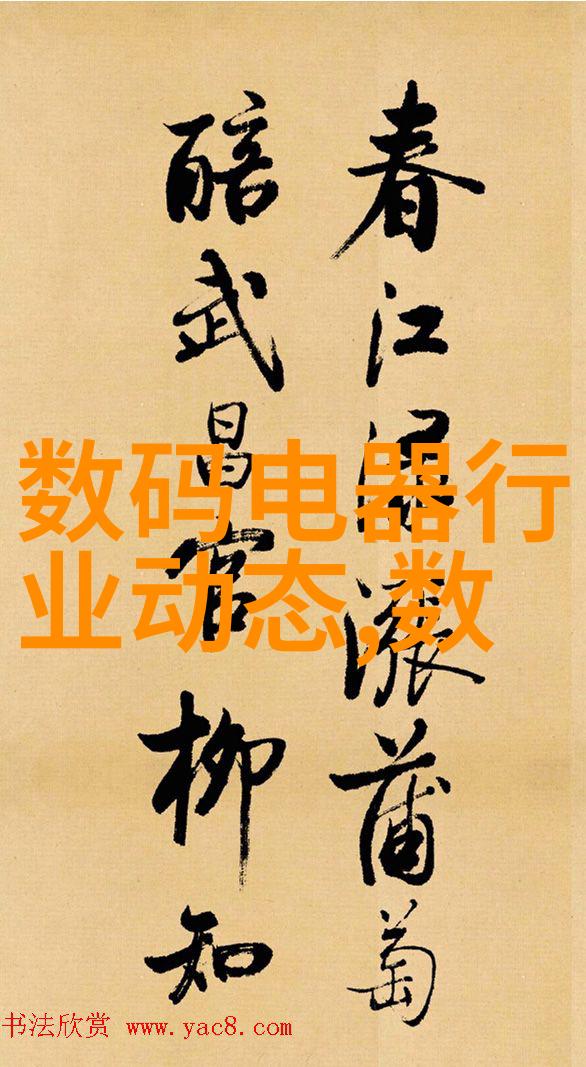 春江渌涨蒲萄
醅武昌官柳知
数码电器行
业动态,数
书法欣赏 www.yac8.com